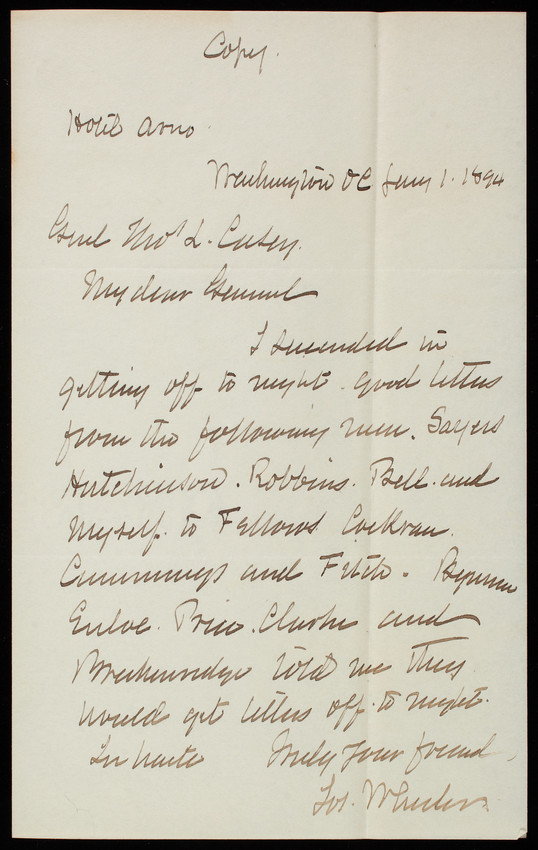 Copy.
Hotel Arno.
Washington DC Jany 1. 1894
Genl Thos L. Casey.
My dear General
I succeeded in
getting off to night good letters
from the following men. Sayers
Hutchinson. Robbins. Bell. and
myself. to Fellows Cockran.
Cummings and Fitch. Bynum
Enloe. Price. Clarke and
Breckenridge told me they
would get letters off to night.
In haste Truly your friend,
Jos. Wheeler.